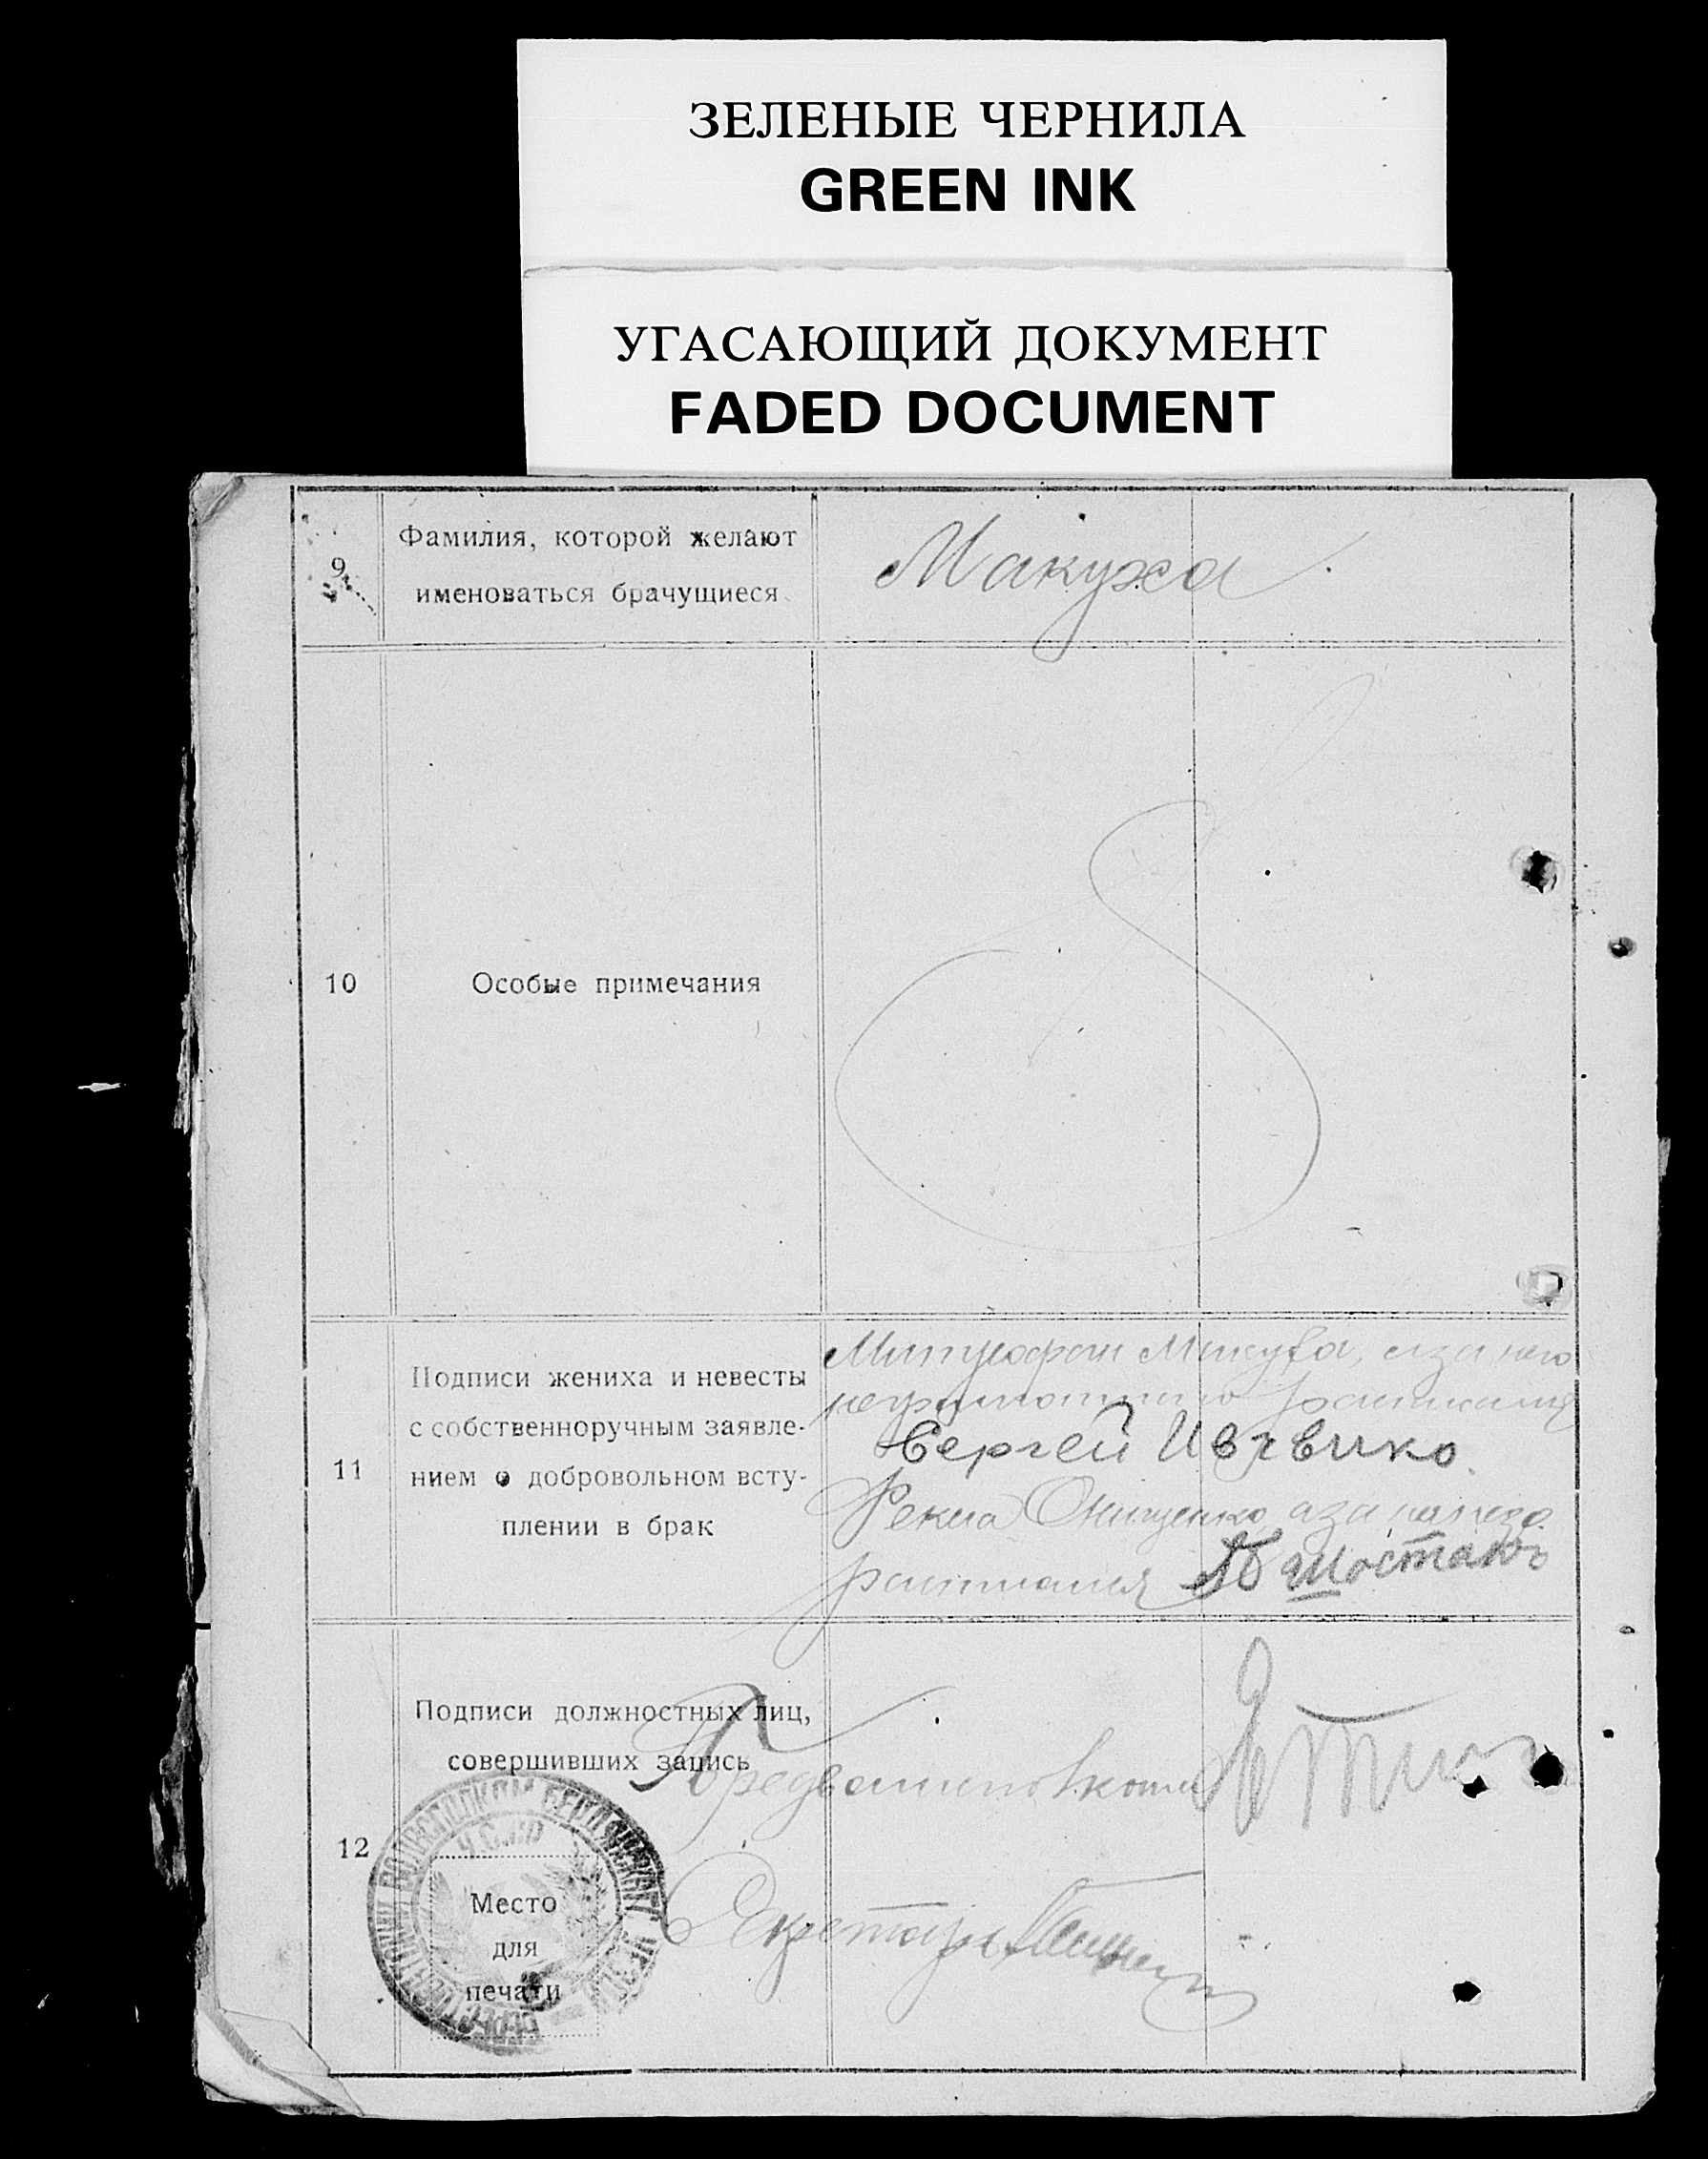 ЗЕЛЕНЫЕ ЧЕРНИЛА
GREEN INK
УГАСАЮЩИЙ ДОКУМЕНТ
FADED DOCUMENT
9
Фамилия, которой желают
именоваться брачущиеся
Макуха
10
Особые примечания
11
Подписи жениха и невесты
с собственноручным заявле-
нием о добровольном всту-
плении в брак
Митрофан Макуха, а за него
неграмотного расписался
Сергей
Фекла Онищенко а за нее
расписался Шостакъ
12
Подписи должностных лиц,
совершивших запись
Секретарь
Место
для
печати